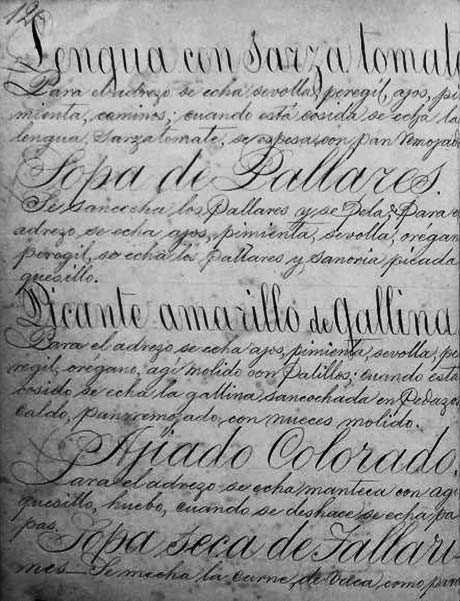 120
Lengua con sarza tomate
Para el adrezo se echa sevolla, peregil, ajos, pi
mienta, cominos; cuando está cosida se echa la
lengua, Sarza tomate, se espesa con pan remojado
Sopa de Pallares.
Se sancocha los Pallares y se Pela; Para el
adrezo se echa ajos, pimienta, sevolla, orégano
peregil, se echa los pallares y sanoria picada
quesillo.
Picante amarillo de Gallina
Para el adrezo se echa ajos, pimienta, sevolla, pe
regil, oregano, agi molido con Palillos; cuando esta
cosido se echa la gallina sancochada en Pedazos
Caldo, pan remojado, con nueces molido.
Ajiado Colorado.
Para el adrezo se echa manteca con agi
quesillo, huebo, cuando se deshace se echa pa
pas.
Sopa seca de Tallari-
nes Se mecha la carne, de Vaca, como para